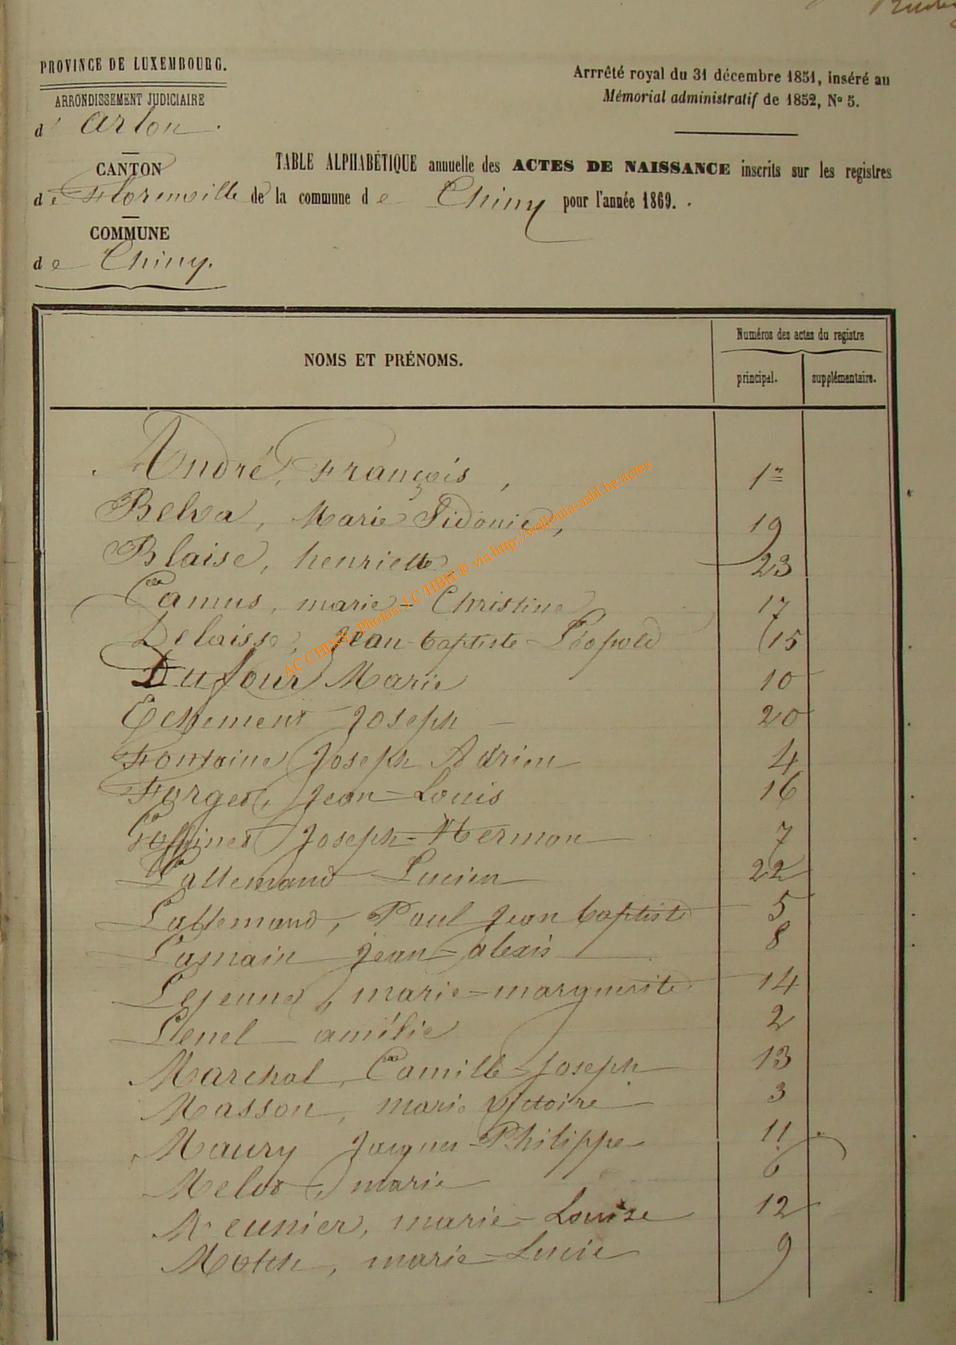 PROVINCE DE LUXEMBOURG.
ARRONDISSEMENT JUDICIAIRE
d' Arlon.
CANTON
de Florenville
COMMUNE
de Chiny.
Arrrêté royal du 31 décembre 1851, inséré au
Mémorial administratif de 1852, No 5.
TABLE ALPHABÉTIQUE annuelle des ACTES DE NAISSANCE inscrits sur les registres
de la commune de Chiny pour l'année 1869.
NOMS ET PRÉNOMS.
Numéros des actes du registre
principal. supplémentaire.
André, François, 1er
Belva, Marie Sidonie, 19
Blaise, henriette 23
Camus, marie-Christine 17
Delaisse, Jean-baptiste-Léopold 15
Dufour Marie 10
Echement Joseph 20
Fontaine Joseph Adrien 4
Forget, Jean-Louis 16
Joseph-Hermon 7
Lallemand Lucien 22
Lallemand, Paul Jean baptiste 5
Lamain Jean-alexis 8
Lejeune, marie-marguerite 14
amélie 2
Marchal, Camille-Joseph 13
Masson, marie victoire 3
Maury Jacques-Philippe 11
Melot, marie 6
Meunier, marie-Louise 12
marie-Lucie 9